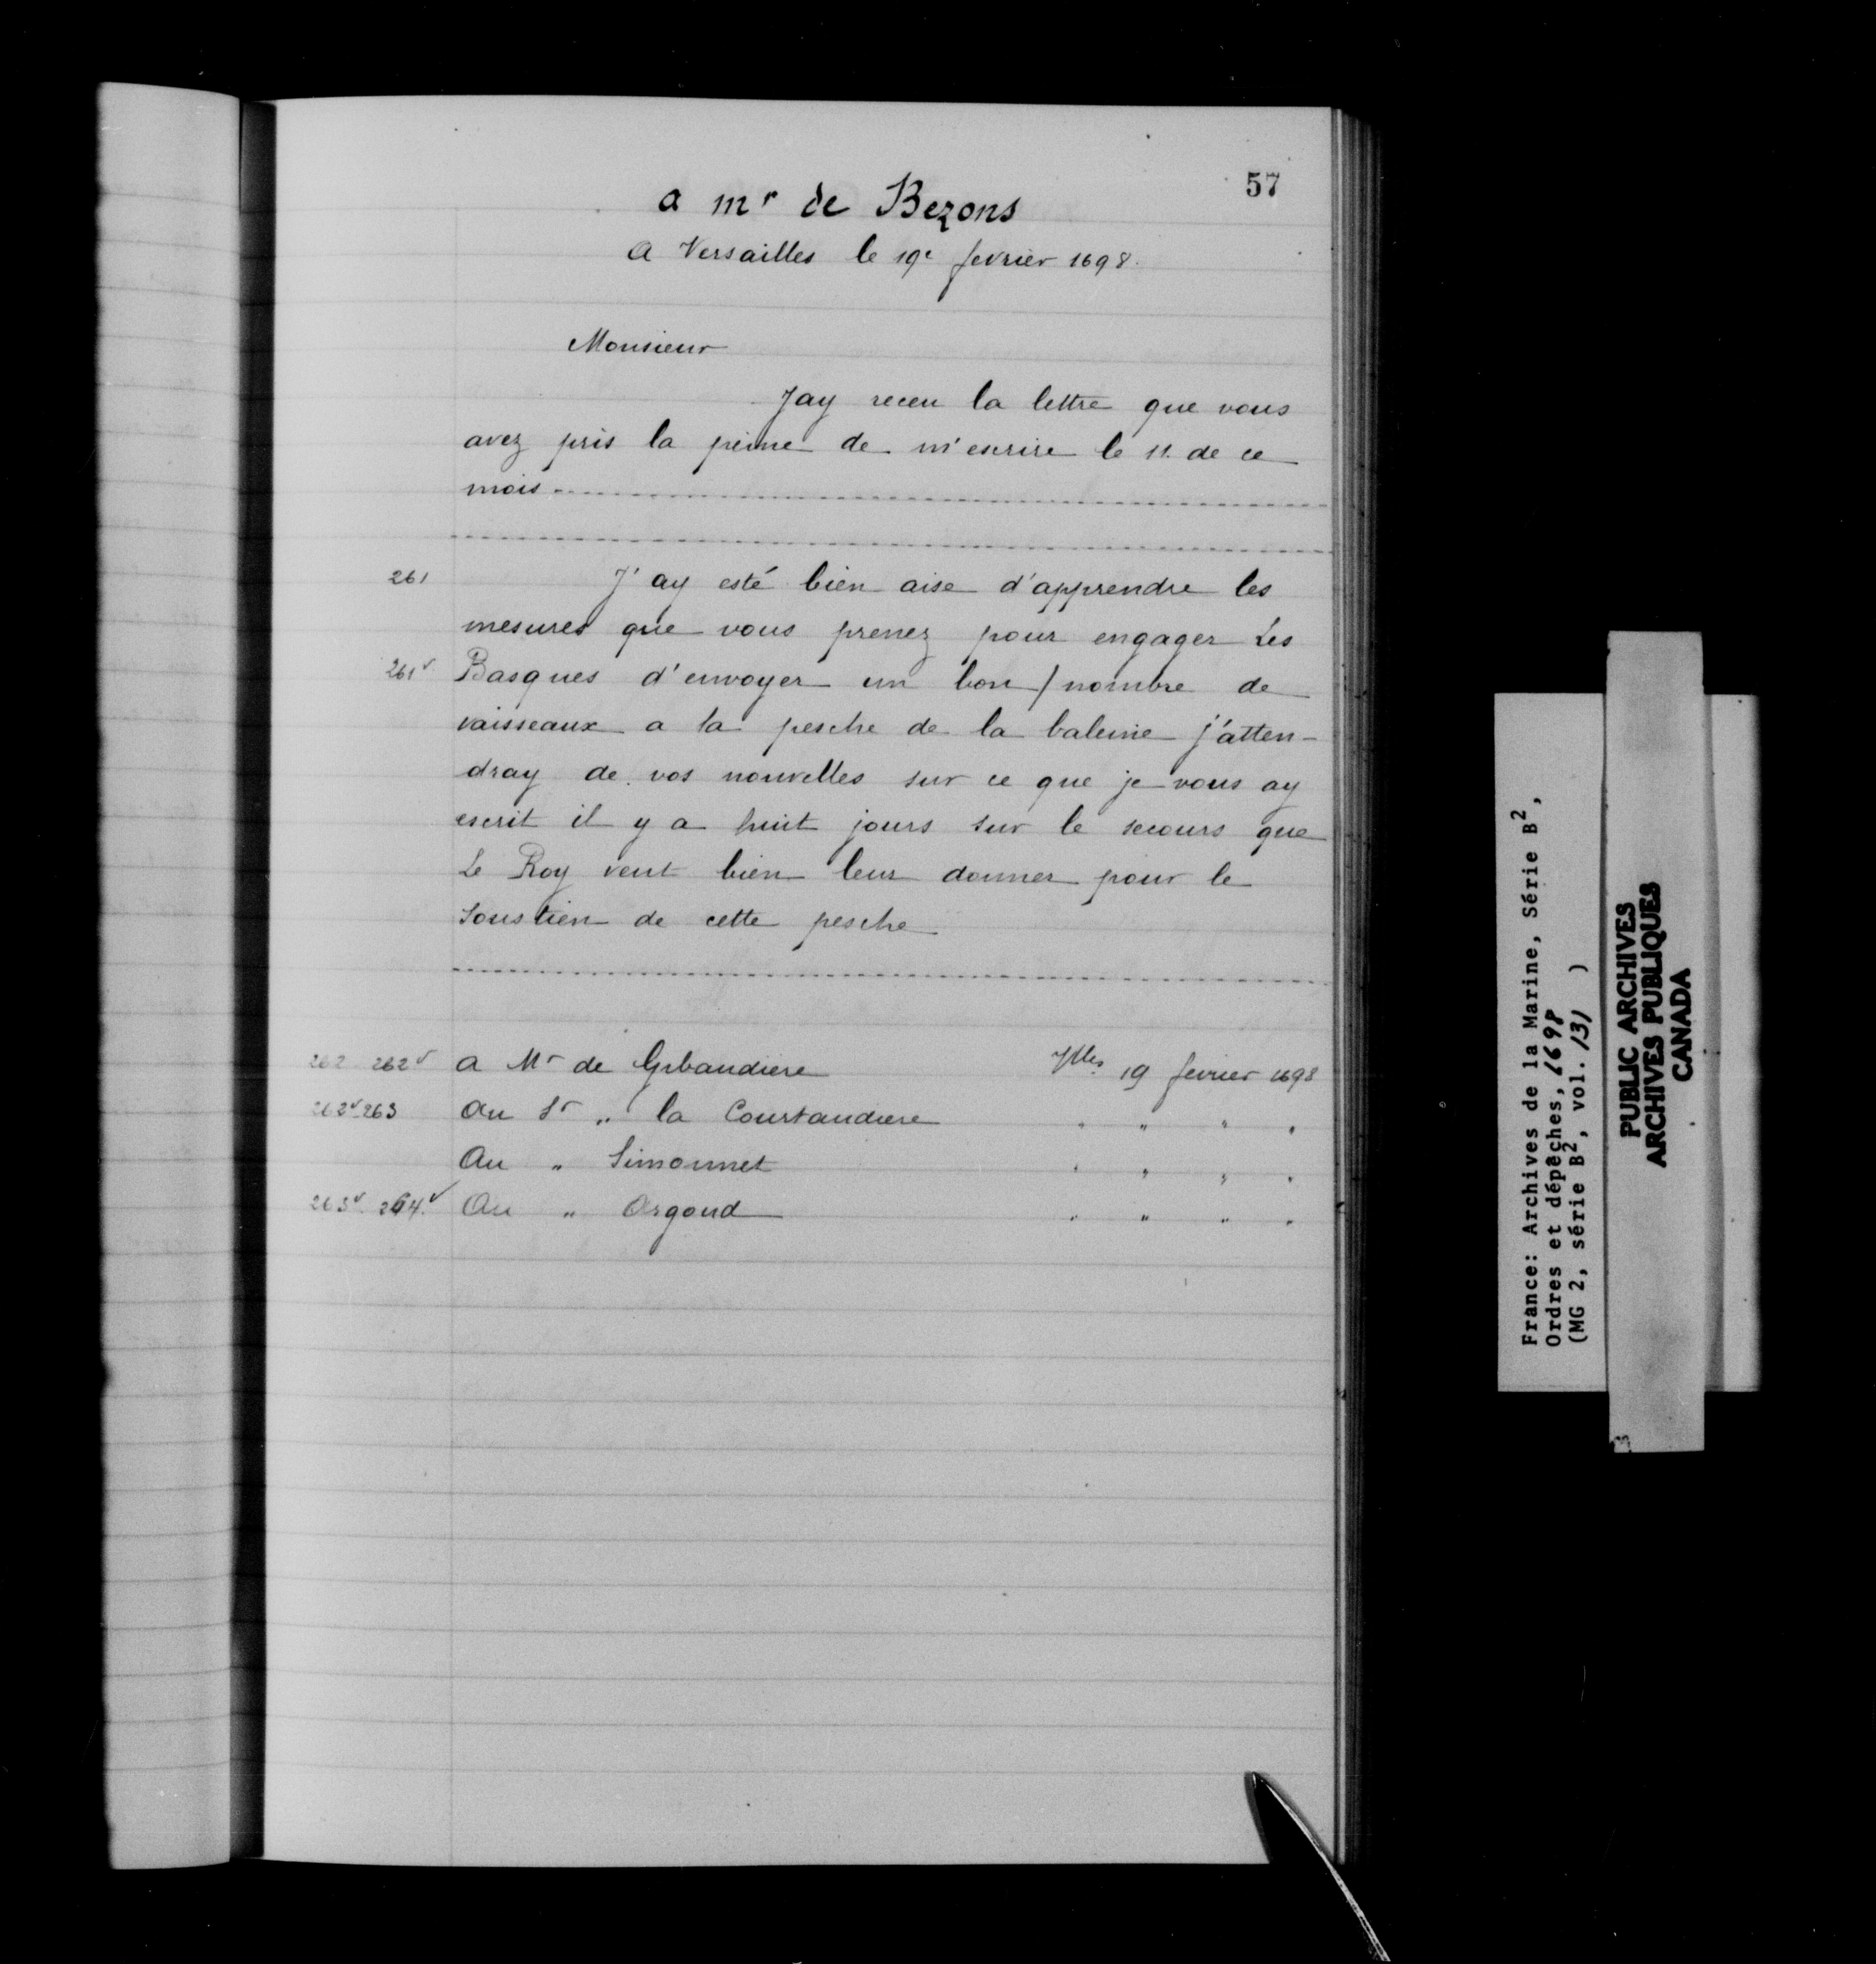 57
a mr de Bezons
A Versailles le 19e fevrier 1698.
Monsieur
Jay receu la lettre que vous
avez pris la peine de m'escrire le 11. de ce
mois
261 J'ay esté bien aise d'apprendre les
mesures que vous prenez pour engager Les
261v Basques d'envoyer un bon / nombre de
vaisseaux a la pesche de la baleine j'atten-
dray de vos nouvelles sur ce que je vous ay
escrit il y a huit jours sur le secours que
Le Roy veut bien leur donner pour le
soustien de cette pesche
262 262v a Mr de Gibaudiere Vlles 19 fevrier 1698
262v 263 Au Sr " la Courtaudiere " " " "
Au " Simonnet " " " "
263v 264v Au " Argoud " " " "
France: Archives de la Marine, Série B2,
Ordres et dépêches, 1698
(MG 2, série B2, vol. 131 )
PUBLIC ARCHIVES
ARCHIVES PUBLIQUES
CANADA